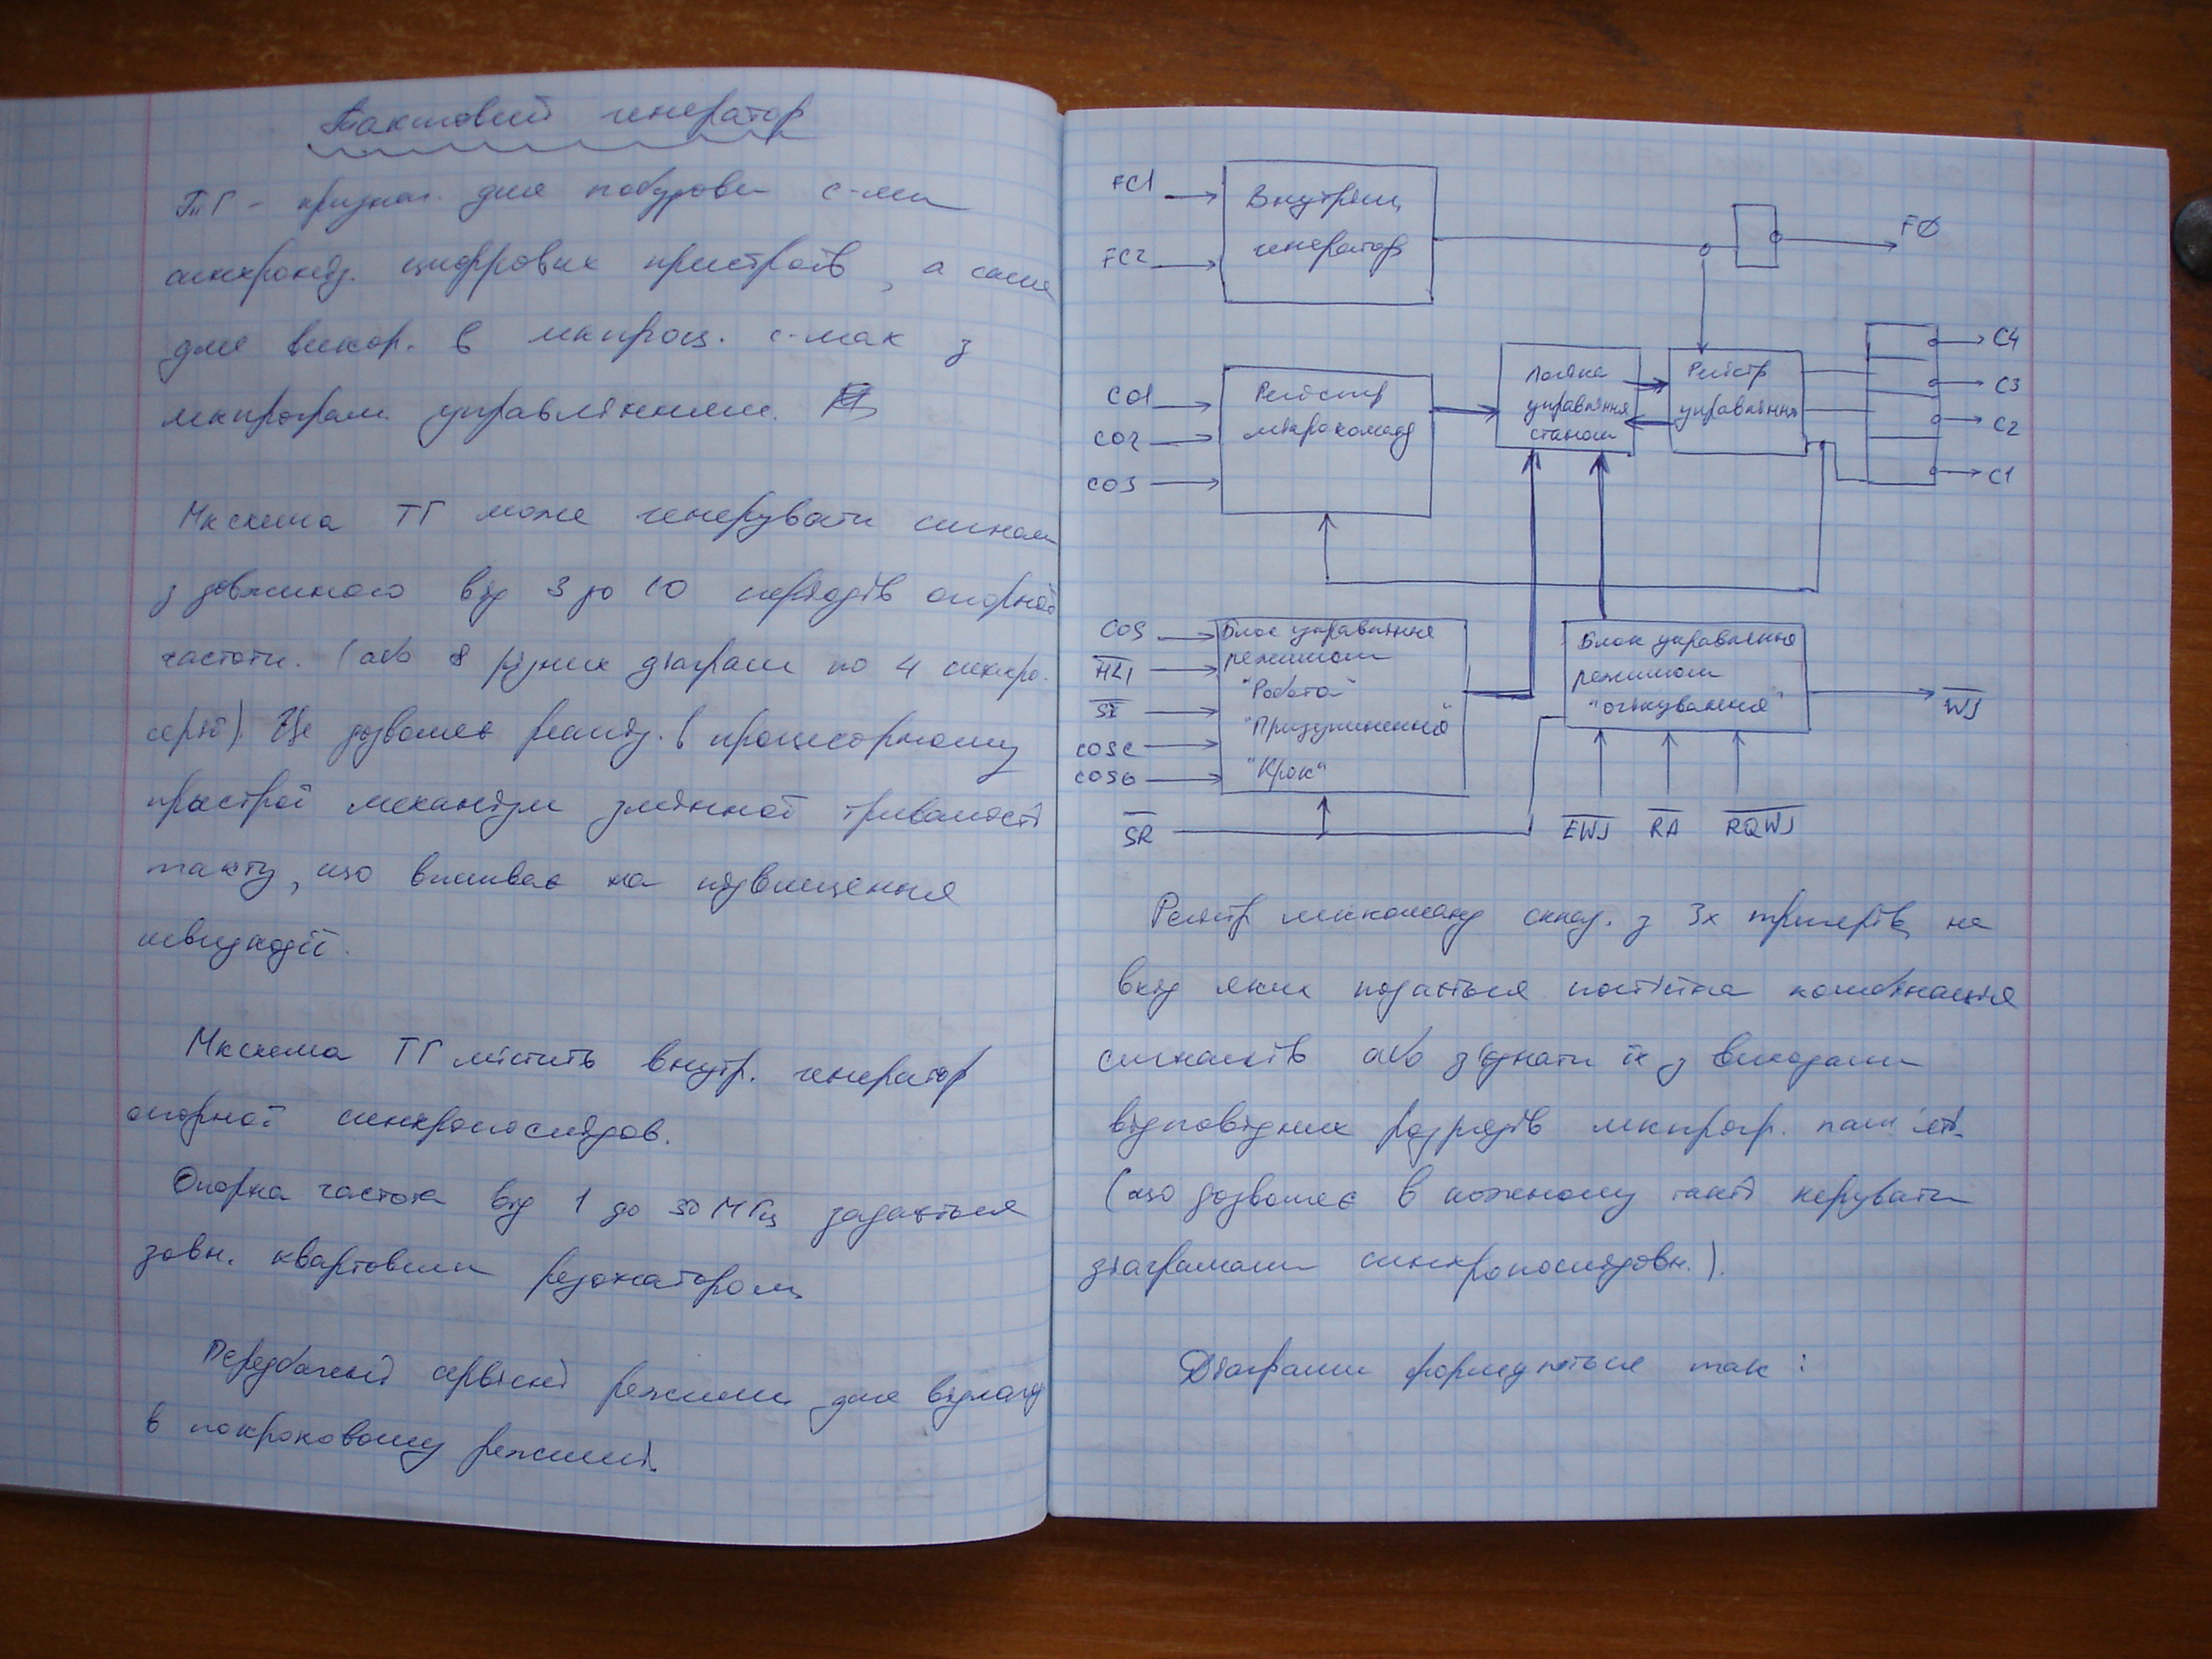 Тактовий генератор
ТГ - признач. для побудови с-ми
синхроніз. цифрових пристроїв, а саме
для викор. в мкпроц. с-мах з
мкпрограм. управлінням.
Мксхема ТГ може генерувати сигнали
з довжиною від 3 до 10 періодів опорної
частоти. (або 8 різних діаграм по 4 синхро-
серії). Це дозволяє реаліз. в процесорному
пристрої механізм змінної тривалості
такту, що впливає на підвищення
швидкодії.
Мксхема ТГ містить внутр. генератор
опорної синхропослідов.
Опорна частота від 1 до 30 МГц задається
зовн. кварцовим резонатором
Передбачені сервісні режими для відлагод
в покроковому режимі.
FC1
FC2
Внутрішн
генератор
FØ
CO1
CO2
CO3
Регістр
мікрокоманд
Логіка
управління
станом
Регістр
управління
C4
C3
C2
C1
COS
HLI
SI
COSC
COSO
SR
Блок управління
режимом
"Робота"
"Призупинення"
"Крок"
Блок управління
режимом
"очікування"
WS
EWS
RA
RQWS
Регістр мккоманд склад. з 3х тригерів, на
вхід яких подається постійна комбінація
сигналів або з'єднати їх з виходами
відповідних розрядів мкпрогр. пам'яті
(що дозволяє в кожному такті керувати
діаграмами синхропослідовн.).
Діаграми формуються так: